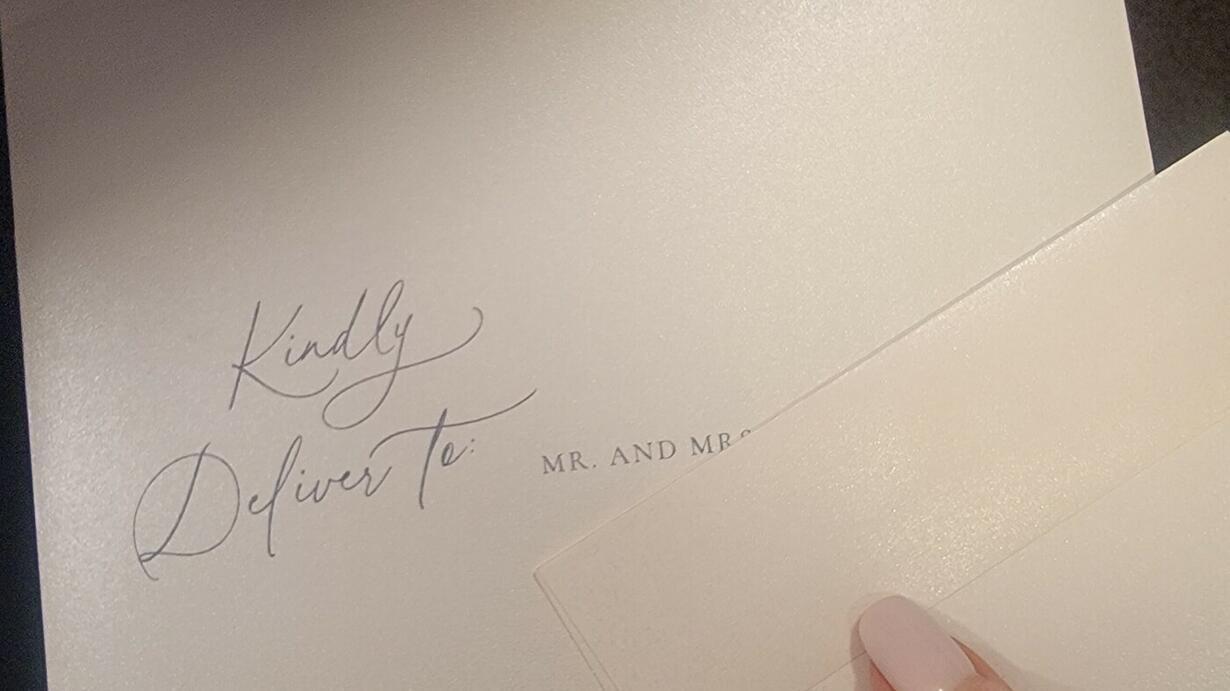 Kindly
Deliver to: MR. AND MRS